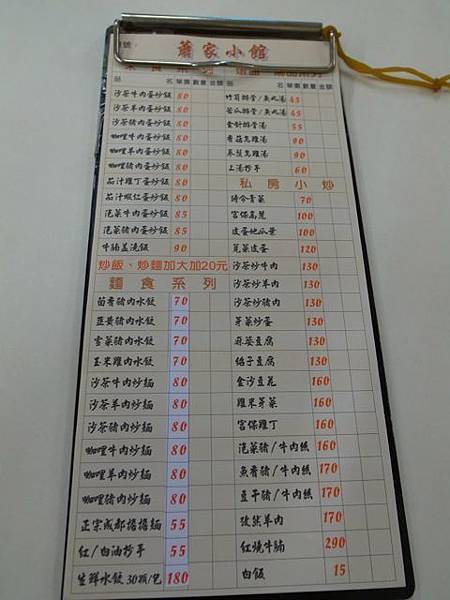 蕭家小館
品 名 單價 數量 金額
沙茶牛肉蛋炒飯 80
沙茶羊肉蛋炒飯 80
沙茶豬肉蛋炒飯 80
咖哩牛肉蛋炒飯 80
咖哩羊肉蛋炒飯 80
咖哩豬肉蛋炒飯 80
茄汁雞丁蛋炒飯 80
茄汁蝦仁蛋炒飯 80
泡菜牛肉蛋炒飯 85
泡菜豬肉蛋炒飯 85
牛腩蓋澆飯 90
炒飯、炒麵加大加20元
麵食系列
茴香豬肉水餃 70
韭黃豬肉水餃 70
雪菜豬肉水餃 70
玉米雞肉水餃 70
沙茶牛肉炒麵 80
沙茶羊肉炒麵 80
沙茶豬肉炒麵 80
咖哩牛肉炒麵 80
咖哩羊肉炒麵 80
咖哩豬肉炒麵 80
正宗成都擔擔麵 55
紅/白油抄手 55
生鮮水餃 30顆/包 180
品 名 單價 數量 金額
竹筍排骨/魚丸湯 45
苦瓜排骨/魚丸湯 45
金針排骨湯 55
香菇烏雞湯 90
鳳梨烏雞湯 90
上湯抄手 60
私房小炒
時令青菜 70
宮保高麗 100
皮蛋地瓜葉 100
莧菜皮蛋 120
沙茶炒牛肉 130
沙茶炒羊肉 130
沙茶炒豬肉 130
芽菜炒蛋 130
麻婆豆腐 130
蛤子豆腐 130
金沙豆花 160
雞米芽菜 160
宮保雞丁 160
泡菜豬/牛肉絲 160
魚香豬/牛肉絲 170
豆干豬/牛肉絲 170
孜然羊肉 170
紅燒牛腩 290
白飯 15